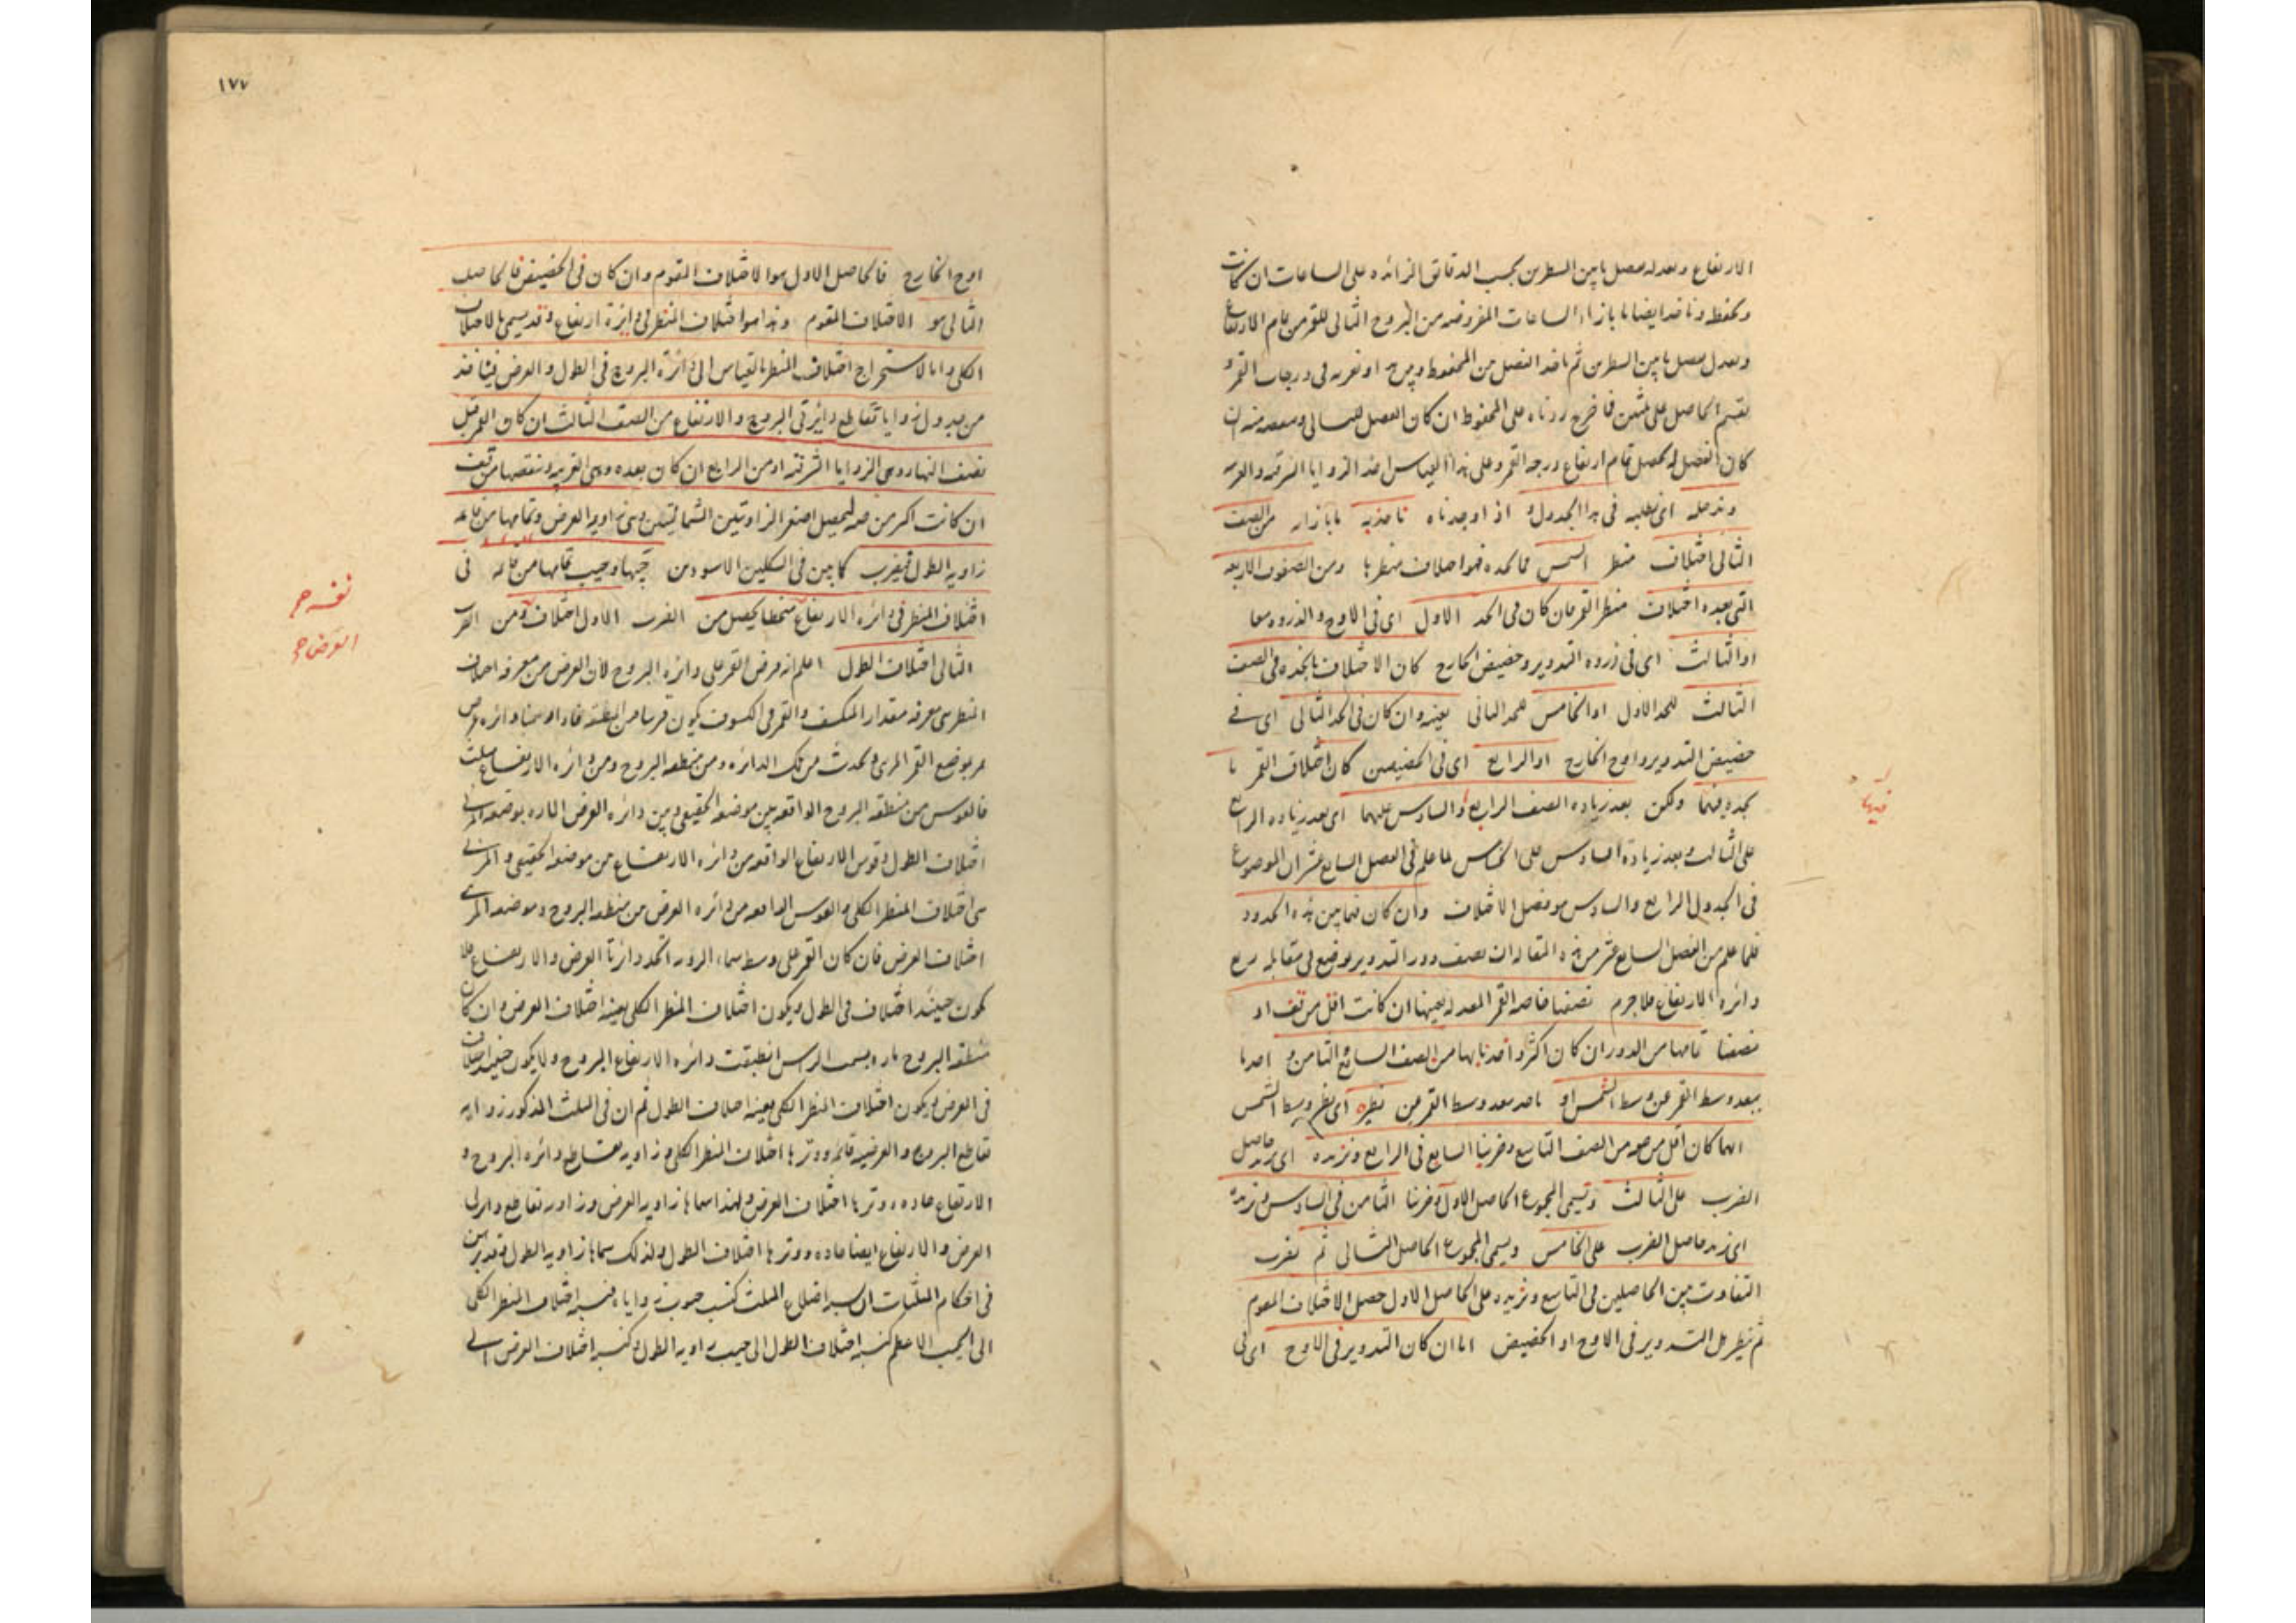 الارتفاع وبعدله بفضل ما بين السطرين بحسب الدقائق الزائدة على الساعات ان كانت
ونحفظه وناخذ ايضا ما بازاء الساعات المفروضه من البروج الثانى للقمر من تمام الارتفاع
ونعدل بفضل ما بين السطرين ثم ناخذ الفضل بين المحفوظ وبين هذا ونضربه فى درجات القمر و
نقسم الحاصل على ثلثين فما خرج زدناه على المحفوظ ان كان الفضل للثانى وننقصه منه ان
كان الفضل له يحصل تمام ارتفاع درجة القمر وعلى هذا القياس اخذ الزوايا الشرقيه والغربيه
وندخله اى نطلبه فى هذا الجدول و اذا وجدناه ناخذ به ما بازائه من الصف
الثانى اختلاف منظر الشمس فما نجده فهو اختلاف منظرها ومن الصفوف الاربعه
التى بعده اختلاف منظر القمر فان كان فى الحد الاول اى فى الاوج والذروه معا
او الثالث اى فى ذروه التدوير وحضيض الخارج كان الاختلاف ما نجده فى الصف
الثالث للحد الاول او الخامس للحد الثانى بعينه وان كان فى الحد الثانى اى فى
حضيض التدوير واوج الخارج او الرابع اى فى الحضيضين كان اختلاف القمر ما
نجده فيهما ولكن بعد زياده الصف الرابع والسادس عليهما اى بعد زياده الرابع
على الثالث وبعد زيادة السادس على الخامس لما علم فى الفصل السابع عشر ان الموضوع
فى الجدول الرابع والسادس هو فضل الاختلاف وان كان فيما بين هذه الحدود
فلما علم من الفصل السابع عشر من هذه المقاله ان نصف دور التدوير موقع فى مقابله ربع
دائره الارتفاع فلا جرم نصفنا خاصه القمر المعدله بعينها ان كانت اقل من قف او
نصفنا تمامها من الدور ان كان اكثر واخذنا بها من الصف السابع والثامن و اخذنا
ببعد وسط القمر عن وسط الشمس او ناخذ ببعد وسط القمر عن نظيره اى نظير وسط الشمس
ايهما كان اقل من ص من الصف التاسع وضربنا السابع فى الرابع ونزيده اى نزيد حاصل
الضرب على الثالث ونسمى المجموع الحاصل الاول وضربنا الثامن فى السادس ونزيده
اى نزيد حاصل الضرب على الخامس ويسمى المجموع الحاصل الثانى ثم نضرب
التفاوت بين الحاصلين فى التاسع ونزيده على الحاصل الاول حصل الاختلاف المقوم
ثم ننظر هل التدوير فى الاوج او الحضيض اما ان كان التدوير فى الاوج اى فى
فيها
١٧٧
اوج الخارج فالحاصل الاول هو الاختلاف المقوم وان كان فى الحضيض فالحاصل
الثانى هو الاختلاف المقوم وهذا هو اختلاف المنظر فى دايرة ارتفاع وقد يسمى بالاختلاف
الكلى واما لاستخراج اختلاف المنظر بالقياس الى دائرة البروج فى الطول والعرض فناخذ
من جدول زوايا تقاطع دايرتى البروج والارتفاع من الصف الثالث ان كان القمر قبل
نصف النهار وهى الزوايا الشرقيه او من الرابع ان كان بعده وهى الغربيه وننقصها من قف
ان كانت اكثر من ص ليحصل اصغر الزاويتين الشماليتين وهى زاويه العرض وتمامها من
زاويه الطول فنضرب كما بين فى الشكلين الاسودين جيبها وجيب تمامها من فى
اختلاف المنظر فى دائره الارتفاع منحطا يحصل من الضرب الاول اختلاف ومن الضرب
الثانى اختلاف الطول اعلم انه فرض القمر على دائره البروج لان الغرض من معرفه اختلاف
المنظر هى معرفه مقدار المنكسف والقمر فى الكسوف يكون قريبا من المنطقه فاذا اوسمنا دائره عرض
تمر بموضع القمر المرى يحدث من تلك الدائره ومن منطقه البروج ومن دائره الارتفاع مثلث
فالقوس من منطقه البروج الواقعه بين موضعه الحقيقى وبين دائره العرض الماره بموضعه المرئى
اختلاف الطول وقوس الارتفاع الواقعه من دائره الارتفاع بين موضعه الحقيقى والمرئى
هى اختلاف المنظر الكلى والقوس الواقعه من دائره العرض بين منطقه البروج وموضعه المرئى
اختلاف العرض فان كان القمر على وسط سماء الرؤيه اتحد دائرتا العرض والارتفاع فلا
يكون حينئذ اختلاف فى الطول ويكون اختلاف المنظر الكلى بعينه اختلاف العرض وان كان
منطقه البروج ماره بسمت الراس انطبقت دائره الارتفاع البروج ولا يكون حينئذ اختلاف
فى العرض ويكون اختلاف المنظر الكلى بعينه اختلاف الطول ثم ان فى المثلث المذكور زاويه
تقاطع البروج والعرضيه قائمه ووترها اختلاف المنظر الكلى وزاويه تقاطع دائره البروج و
الارتفاع حاده ووترها اختلاف العرض ولهذا سماها زاويه العرض وزاويه تقاطع دايرتى
العرض والارتفاع ايضا حاده ووترها اختلاف الطول ولذلك سماها زاويه الطول وقد تبين
فى احكام المثلثات ان نسب اضلاع المثلث كنسب جيوب زواياه فنسبه اختلاف المنظر الكلى
الى الجيب الاعظم كنسبه اختلاف الطول الى جيب زاويه الطول وكنسبه اختلاف العرض الى
العرض صح